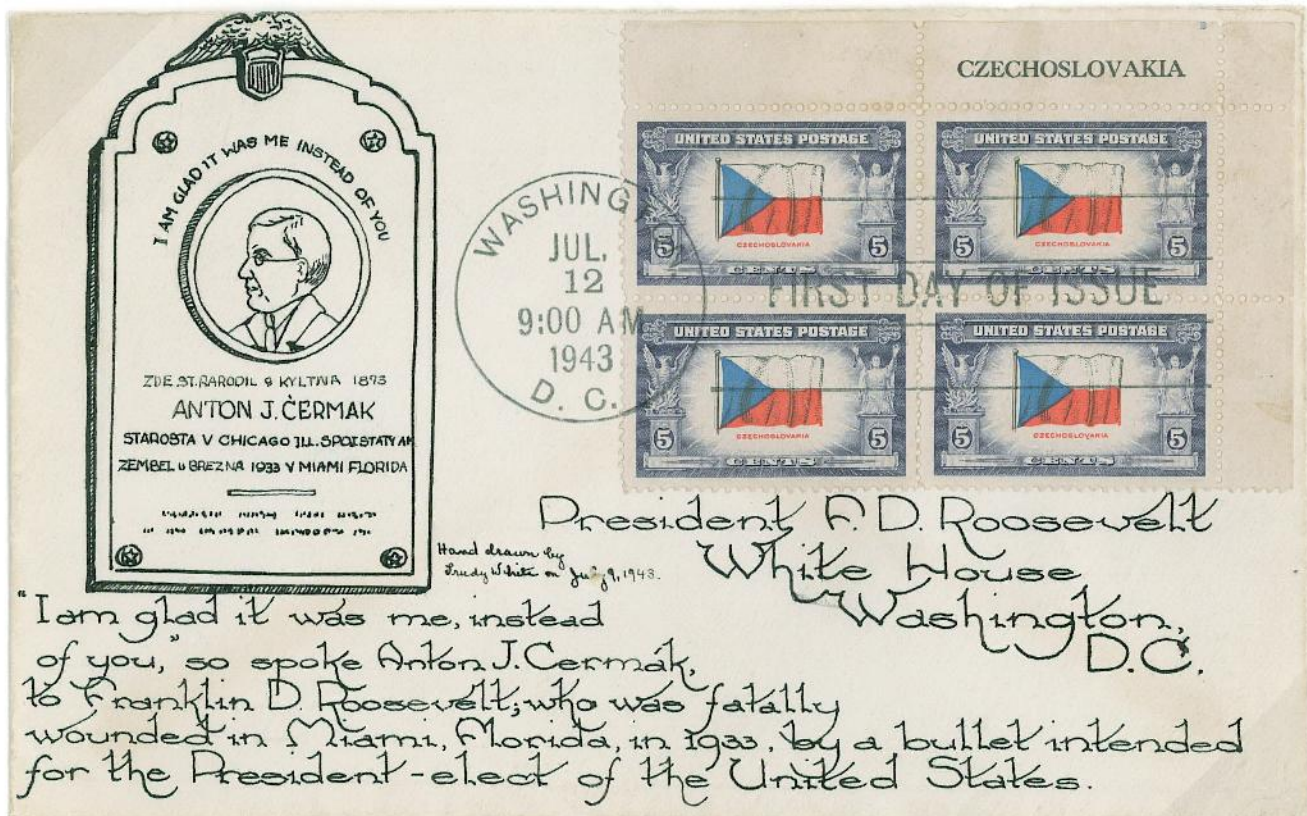 I AM GLAD IT WAS ME INSTEAD OF YOU
ZDE ST. RARODIL 9 KVLTNA 1873
ANTON J. ČERMAK
STAROSTA V CHICAGO ILL. SPOISTATY AM
ZEMBEL U BREZNA 1933 V MIAMI FLORIDA
Hand drawn by
Trudy White on July 9, 1943.
WASHING
JUL.
12
9:00 AM
1943
D. C.
CZECHOSLOVAKIA
UNITED STATES POSTAGE
CZECHOSLOVAKIA
5 5
CENTS
UNITED STATES POSTAGE
CZECHOSLOVAKIA
5 5
CENTS
FIRST DAY OF ISSUE
UNITED STATES POSTAGE
CZECHOSLOVAKIA
5 5
CENTS
UNITED STATES POSTAGE
CZECHOSLOVAKIA
5 5
CENTS
President F. D. Roosevelt
White House
Washington,
D.C.
"I am glad it was me, instead
of you," so spoke Anton J. Cermák,
to Franklin D. Roosevelt; who was fatally
wounded in Miami, Florida, in 1933, by a bullet intended
for the President-elect of the United States.